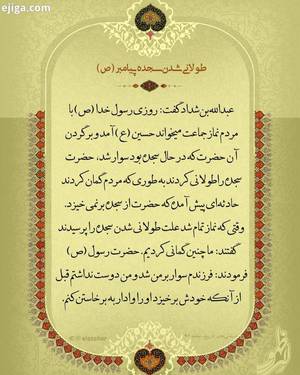 ejiga.com
طولانی شدن سجده پیامبر (ص)
عبدالله بن شداد گفت: روزی رسول خدا (ص) با
مردم نماز جماعت میخواند حسین (ع) آمد و بر گردن
آن حضرت که در حال سجده بود سوار شد، حضرت
سجده را طولانی کردند به طوری که مردم گمان کردند
حادثه ای پیش آمده که حضرت از سجده بر نمی خیزد.
وقتی که نماز تمام شد علت طولانی شدن سجده را پرسیدند
گفتند: ما چنین گمانی کردیم. حضرت رسول (ص)
فرمودند: فرزندم سوار بر من شد و من دوست نداشتم قبل
از آنکه خودش برخیزد او را وادار به برخاستن کنم.